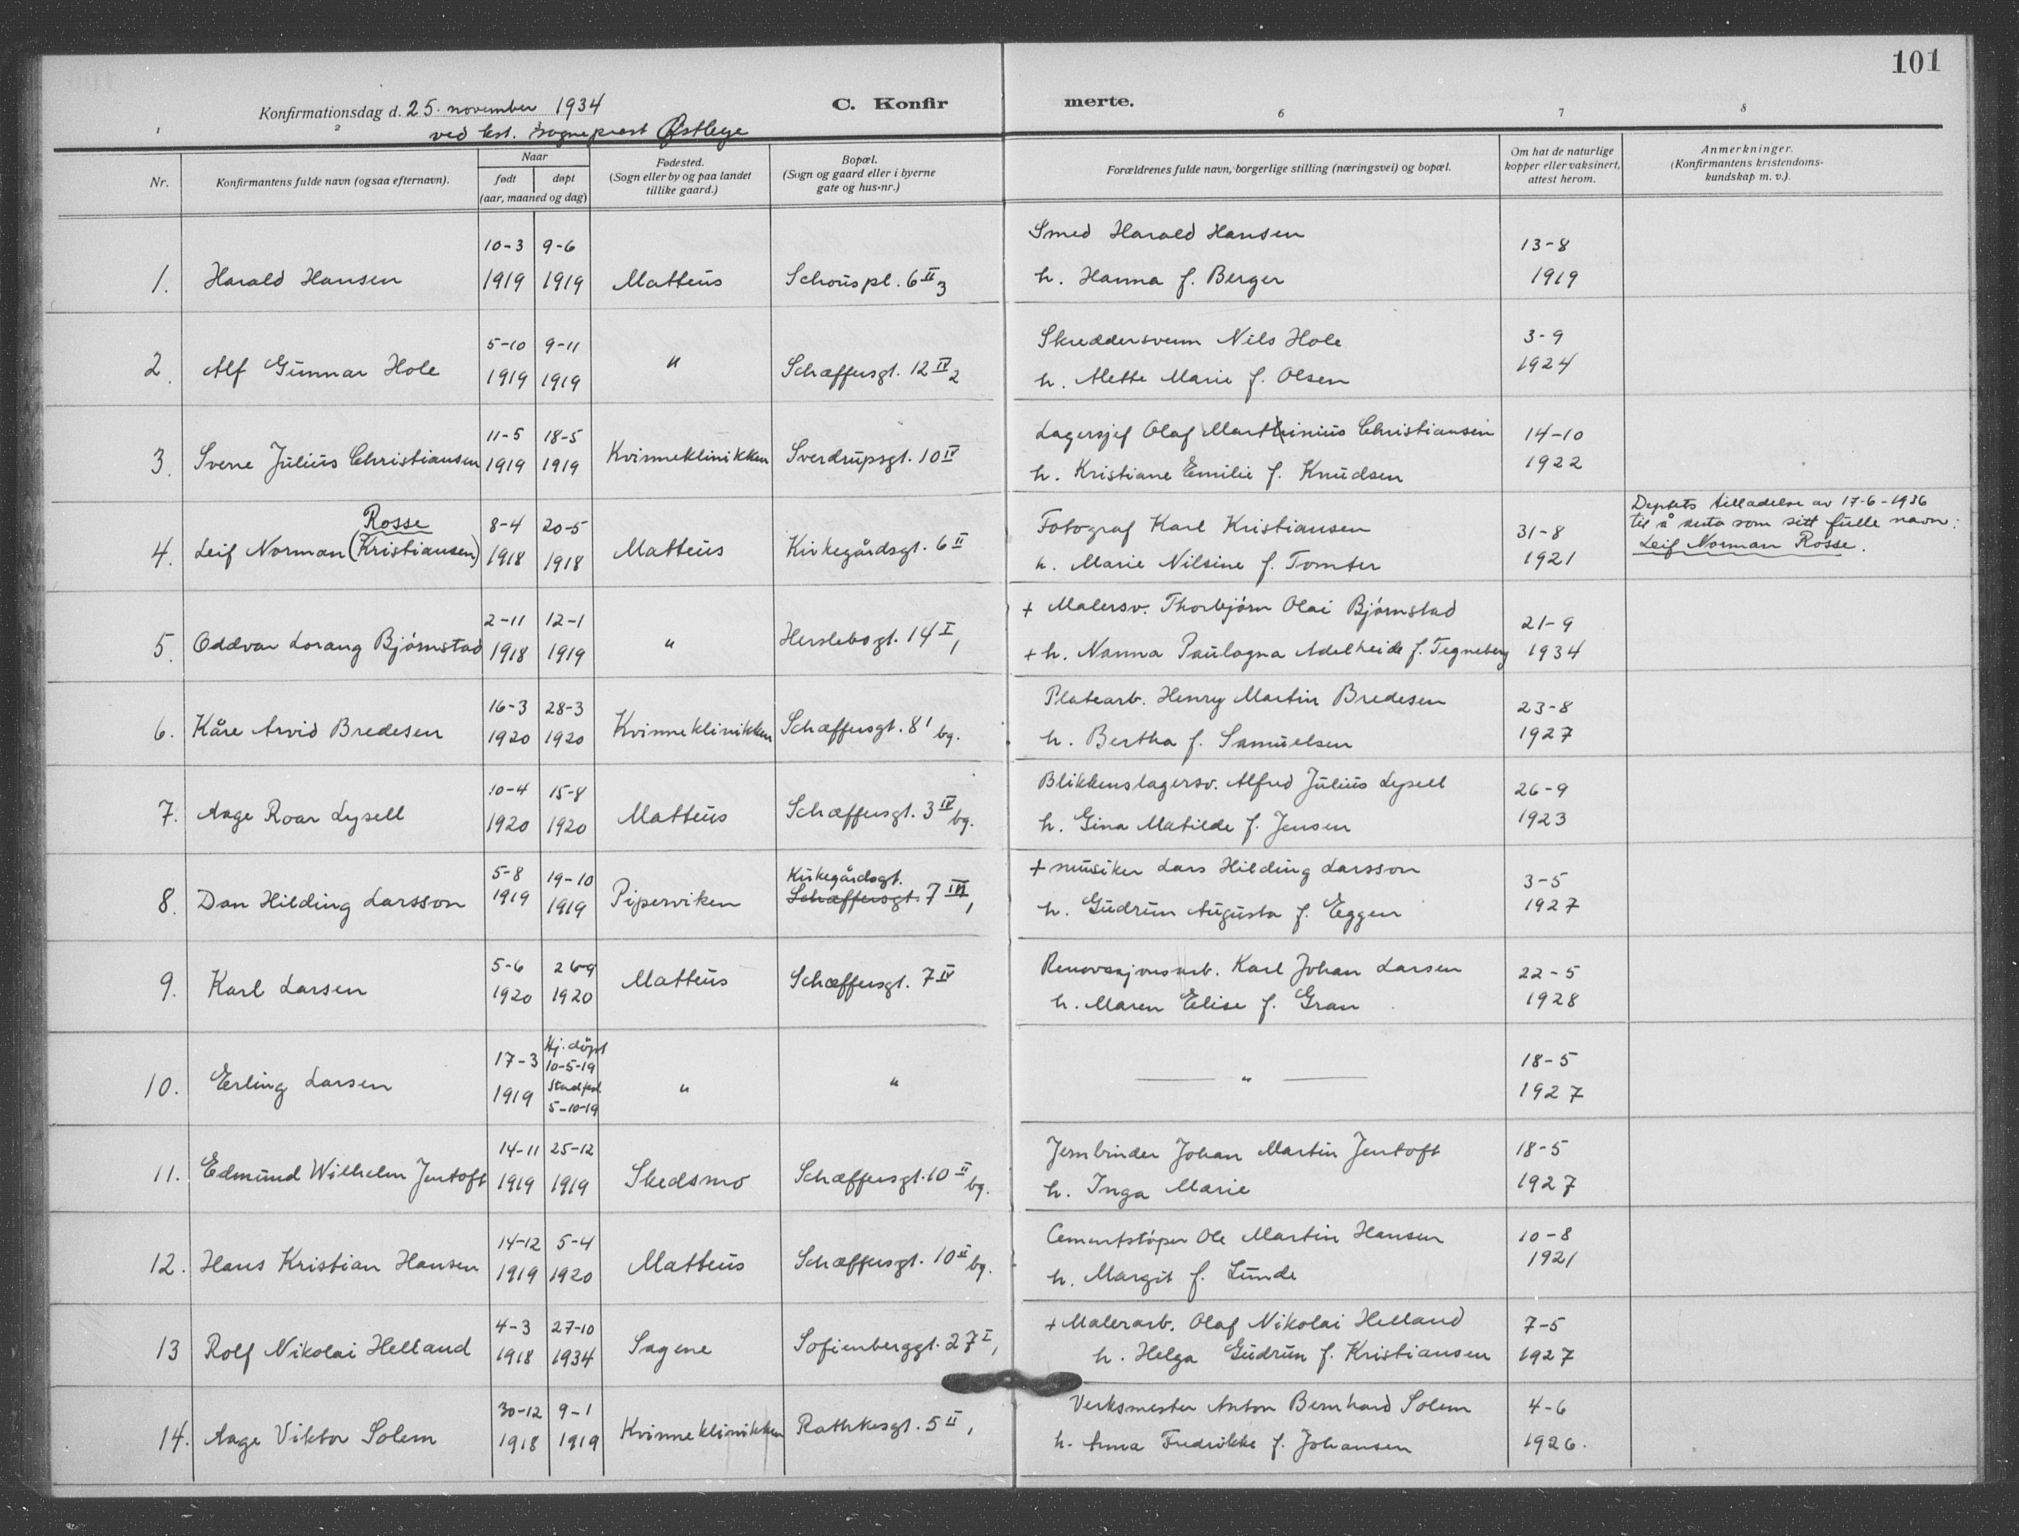 101
Konfirmationsdag d. 25. november 1934
C. Konfirmerte.
ved kst. sogneprest Østlye
1 2 6 7 8
Nr.
Konfirmantens fulde navn (ogsaa efternavn).
Naar
født døpt
(aar, maaned og dag)
Fødested.
(Sogn eller by og paa landet
tillike gaard.)
Bopæl.
(Sogn og gaard eller i byerne
gate og hus-nr.)
Forældrenes fulde navn, borgerlige stilling (næringsvei) og bopæl.
Om hat de naturlige
kopper eller vaksinert,
attest herom.
Anmerkninger.
(Konfirmantens kristendoms-
kundskap m. v.).
10-3 9-6 Smed Harald Hansen 13-8
1. Harald Hansen 1919 1919 Matteus Schous pl. 6 II 3 h. Hanna f. Berger 1919
5-10 9-11 Skreddersvenn Nils Hole 3-9
2. Alf Gunnar Hole 1919 1919 " Schæffersgt. 12 IV 2 h. Alette Marie f. Olsen 1924
11-5 18-5 Lagersjef Olaf Martinius Christiansen 14-10
3. Sverre Julius Christiansen 1919 1919 Kvinneklinikken Sverdrupsgt. 10 IV h. Kristiane Emilie f. Knudsen 1922
Rosse 8-4 20-5 Fotograf Karl Kristiansen 31-8 Deptets tilladelse av 17-6-1936
til å anta som sitt fulle navn:
4. Leif Norman (Kristiansen) 1918 1918 Matteus Kirkegårdsgt. 6 II h. Marie Nilsine f. Tomter 1921 Leif Norman Rosse.
2-11 12-1 + Malersv. Thorbjørn Olai Bjørnstad 21-9
5. Oddvar Lorang Bjørnstad 1918 1919 " Herslebsgt. 14 I, + h. Nanna Paulagna Adelheide f. Tegneberg 1934
16-3 28-3 Platearb. Henry Martin Bredesen 23-8
6. Kåre Arvid Bredesen 1920 1920 Kvinneklinikken Schæffersgt. 8 I bg. h. Bertha f. Samuelsen 1927
10-4 15-8 Blikkenslagersv. Alfred Julius Lysell 26-9
7. Aage Roar Lysell 1920 1920 Matteus Schæffersgt. 3 IV bg. h. Gina Matilde f. Jensen 1923
5-8 19-10 Kirkegårdsgt. + musiker Lars Hilding Larsson 3-5
8. Dan Hilding Larsson 1919 1919 Piperviken Schæffersgt. 7 III, h. Gudrun Augusta f. Eggen 1927
5-6 26-9 Renovasjonsarb. Karl Johan Larsen 22-5
9. Karl Larsen 1920 1920 Matteus Schæffersgt. 7 IV h. Maren Elise f. Gran 1928
17-3 Hj. døpt 18-5
10-5-19
10. Erling Larsen 1919 Stadfest 5-10-19 " " — " — 1927
14-11 25-12 Jernbinder Johan Martin Jentoft 18-5
11. Edmund Wilhelm Jentoft 1919 1919 Skedsmo Schæffersgt. 10 II bg. h. Inga Marie 1927
14-12 5-4 Cementstøper Ole Martin Hansen 10-8
12. Hans Kristian Hansen 1919 1920 Matteus Schæffersgt. 10 II bg. h. Margit f. Lunde 1921
4-3 27-10 + Malerarb. Olaf Nikolai Helland 7-5
13 Rolf Nikolai Helland 1918 1934 Sagene Sofienberggt. 27 I, h. Helga Gudrun f. Kristiansen 1927
30-12 9-1 Verksmester Anton Bernhard Solem 4-6
14. Aage Viktor Solem 1918 1919 Kvinneklinikken Rathkesgt. 5 II, h. Anna Fredrikke f. Johansen 1926.